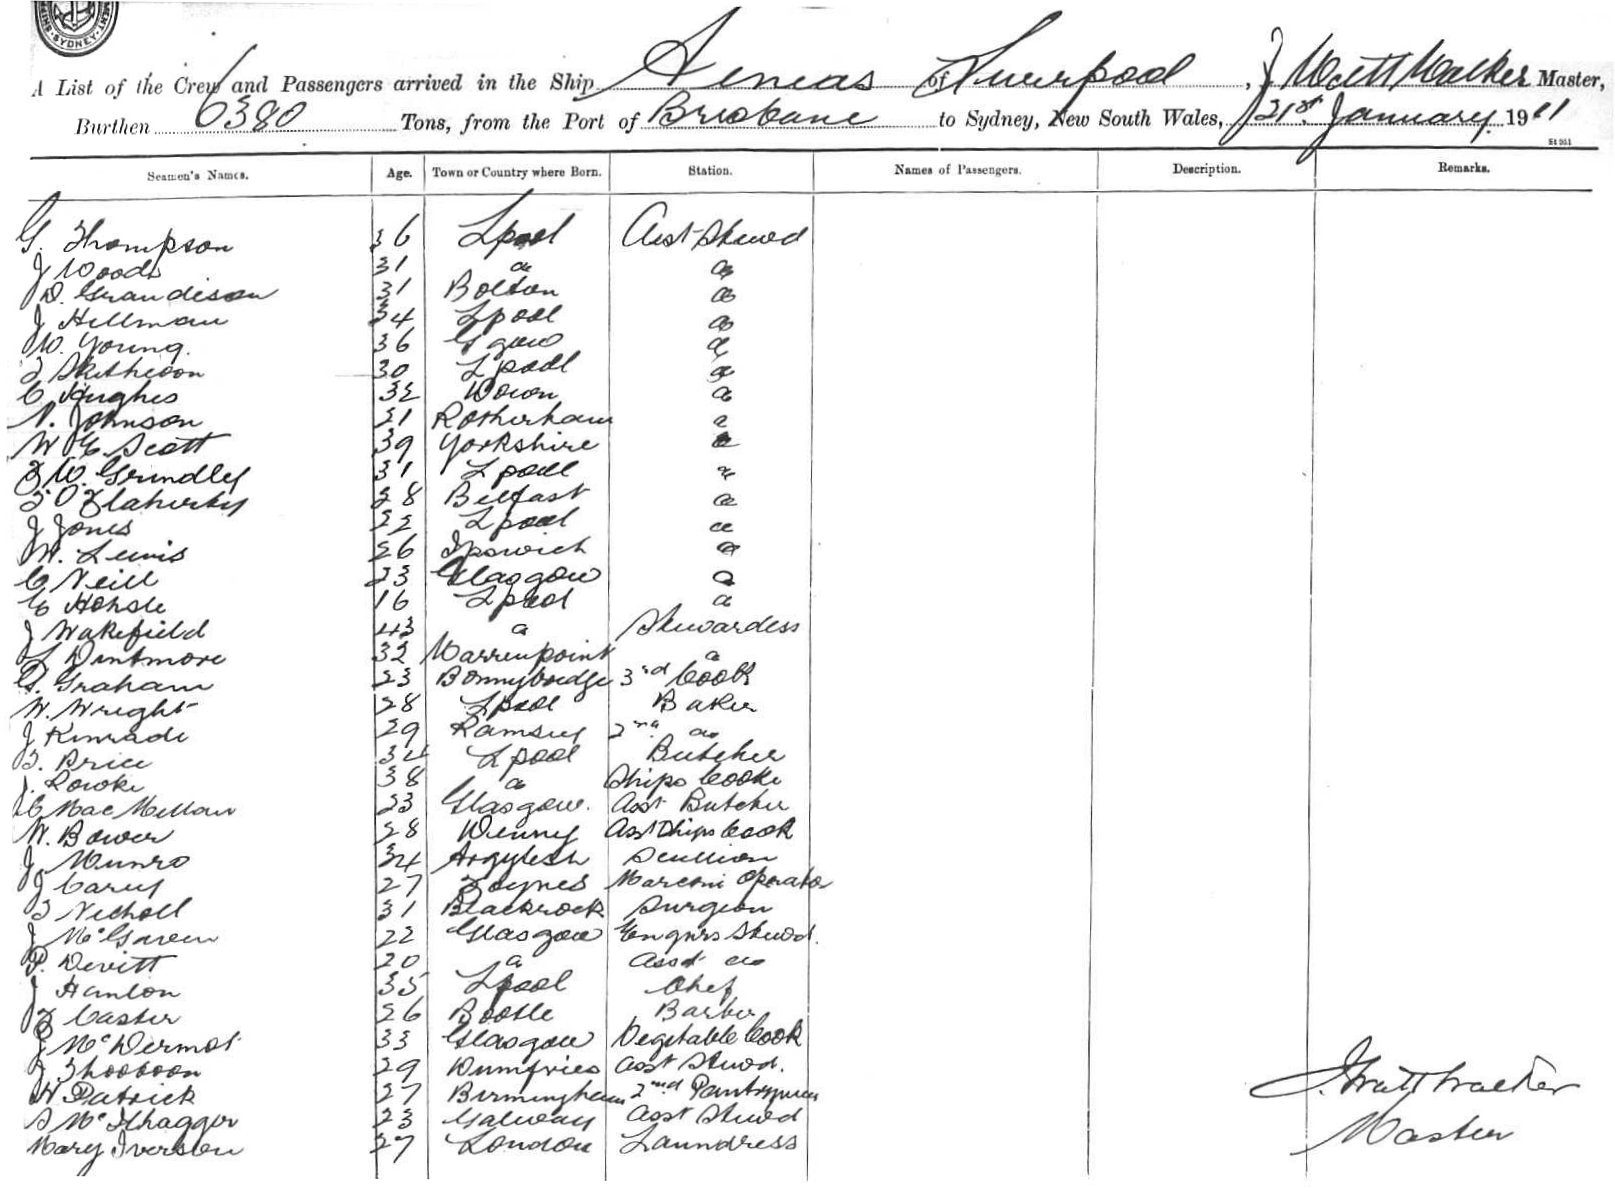 SYDNEY
A List of the Crew and Passengers arrived in the Ship Aeneas of Liverpool, J Watt Walker Master,
Burthen 6380 Tons, from the Port of Brisbane to Sydney, New South Wales, 31st January 1911
Seamen's Names. Age. Town or Country where Born. Station. Names of Passengers. Description. Remarks.
G. Thompson 36 Lpool Asst Stewd
J Woods 31 do do
D. Grandison 31 Bolton do
J Hillman 34 Lpool do
W. Young 36 Ggow do
30 Lpool do
C Hughes 32 Down do
N. Johnson 21 Rotherham do
W E Scott 39 Yorkshire do
F W. Grindley 31 Lpool do
T O'Flaherty 28 Belfast do
J Jones 22 Lpool do
W. Lewis 26 Ipswich do
C Neill 23 Glasgow do
E 16 Lpool do
J Wakefield 43 do Stewardess
L Dintmore 32 Warrenpoint do
G. Graham 23 Bonnybridge 3rd Cook
W. Wright 28 Lpool Baker
J Kinrade 29 Ramsey 2nd do
T. Price 34 Lpool Butcher
J. Rourke 38 do Ships Cook
C MacMellow 23 Glasgow. Asst Butcher
W. Bower 28 Denny Asst Ships Cook
J Munro 34 Argylesh Scullion
J Carey 27 Foynes Marconi Operator
T Nicholl 31 Blackrock Surgeon
J McGavern 22 Glasgow Engnrs Stewd.
P. Devitt 20 do Asst do
J Hanlon 35 Lpool Chef
F Caster 26 Bootle Barber
J McDermot 33 Glasgow Vegetable Cook
J 29 Dumfries Asst Stewd.
W Patrick 27 Birmingham 2nd Pantryman
S 23 Galway Asst Stewd
Mary Iverson 27 London Laundress
J. Watt Walker
Master